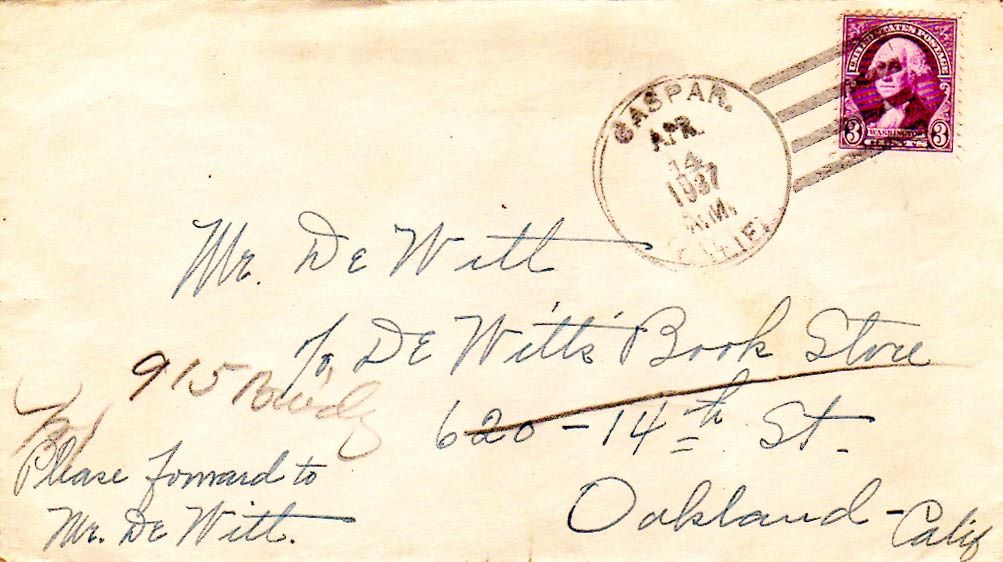 CASPAR.
APR
14
1937
A.M.
CALIF.
UNITED STATES POSTAGE
3 WASHINGTON 3
CENTS
Mr. De Witt
℅ De Witt's Book Store
915 Bdwy
620 - 14th St.
Please forward to
Mr. De Witt.
Oakland - Calif